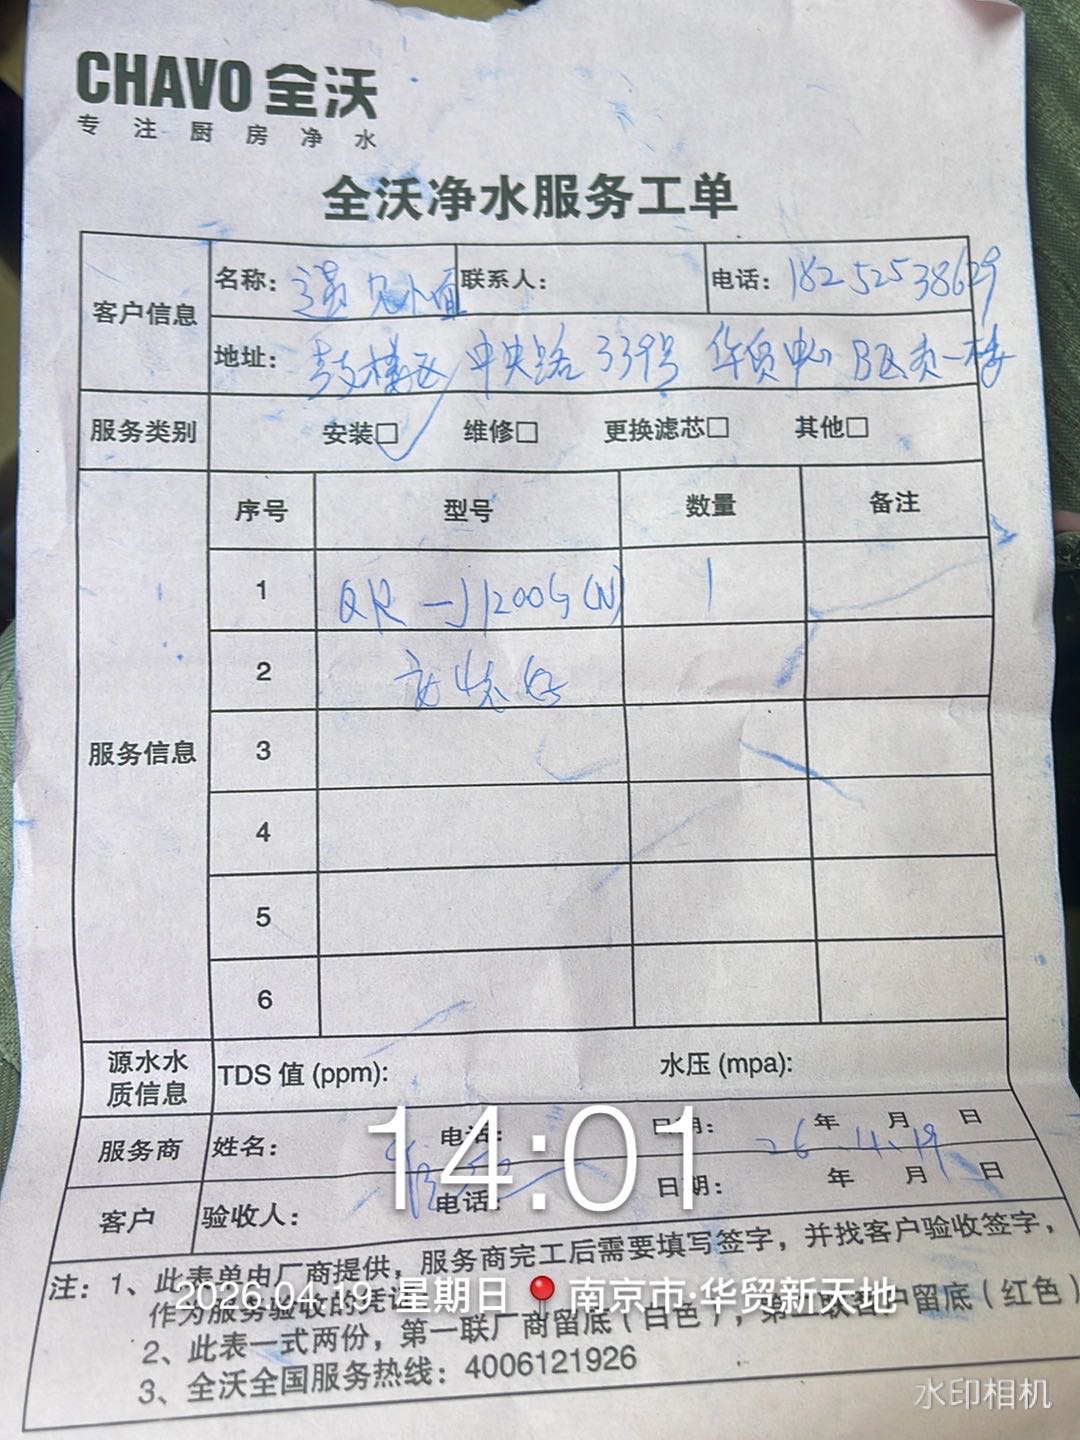 CHAVO 全沃
专注厨房净水
全沃净水服务工单
客户信息 名称：遇见小值 联系人： 电话：18252538629
地址：鼓楼区中央路339号 华贸中心B区负一楼
服务类别 安装□ 维修□ 更换滤芯□ 其他□
服务信息 序号 型号 数量 备注
1 QR-J1200G(N) 1
2 安装好
3
4
5
6
源水水质信息 TDS 值 (ppm): 水压 (mpa):
服务商 姓名： 电话： 日期： 年 月 日
26.4.19
客户 验收人： 电话： 日期： 年 月 日
14:01
注：1、此表单由厂商提供，服务商完工后需要填写签字，并找客户验收签字，
作为服务验收的凭
2026.04.19 星期日 南京市·华贸新天地
2、此表一式两份，第一联厂商留底（白色），第二联客户留底（红色）
3、全沃全国服务热线：4006121926
水印相机